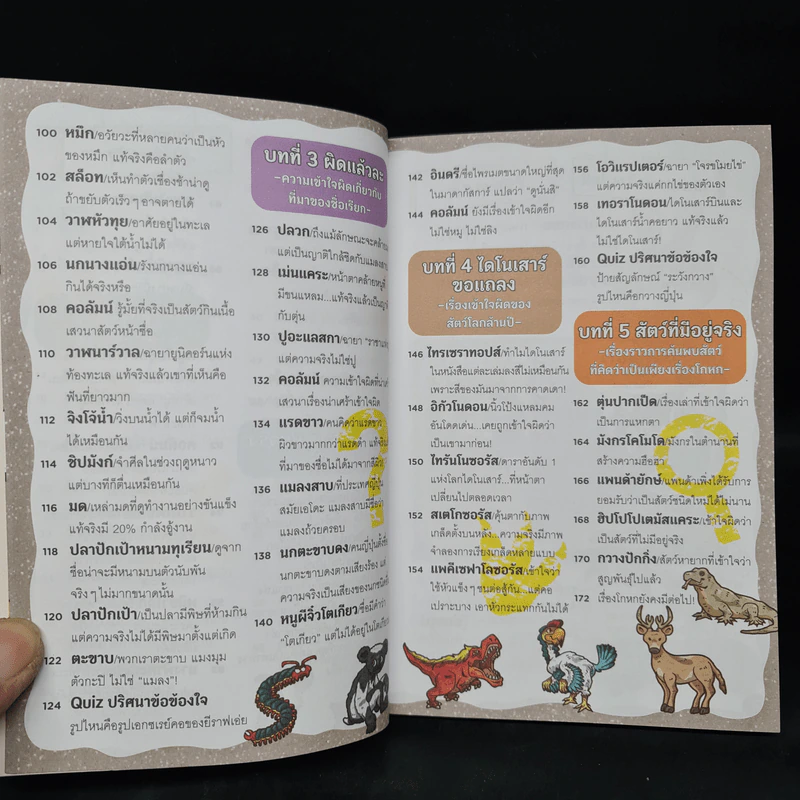 100 หมึก/อวัยวะที่หลายคนว่าเป็นหัว
ของหมึก แท้จริงคือลำตัว
102 สล็อท/เห็นทำตัวเชื่องช้าน่าดู
ถ้าขยับตัวเร็วๆ อาจตายได้
104 วาฬหัวทุย/อาศัยอยู่ในทะเล
แต่หายใจใต้น้ำไม่ได้
106 นกนางแอ่น/รังนกนางแอ่น
กินได้จริงหรือ
108 คอลัมน์ รู้มั้ยที่จริงเป็นสัตว์กินเนื้อ
เสวนาสัตว์หน้าซื่อ
110 วาฬนาร์วาล/ฉายายูนิคอร์นแห่ง
ท้องทะเล แท้จริงแล้วเขาที่เห็นคือ
ฟันที่ยาวมาก
112 จิงโจ้น้ำ/วิ่งบนน้ำได้ แต่ก็จมน้ำ
ได้เหมือนกัน
114 ชิปมังก์/จำศีลในช่วงฤดูหนาว
แต่บางทีก็ตื่นเหมือนกัน
116 มด/เหล่ามดที่ดูทำงานอย่างขันแข็ง
แท้จริงมี 20% กำลังอู้งาน
118 ปลาปักเป้าหนามทุเรียน/ดูจาก
ชื่อน่าจะมีหนามบนตัวนับพัน
จริงๆ ไม่มากขนาดนั้น
120 ปลาปักเป้า/เป็นปลามีพิษที่ห้ามกิน
แต่ความจริงไม่ได้มีพิษมาตั้งแต่เกิด
122 ตะขาบ/พวกเราตะขาบ แมงมุม
ตัวกะปิ ไม่ใช่ "แมลง"!
124 Quiz ปริศนาข้อข้องใจ
รูปไหนคือรูปเอกซเรย์คอของยีราฟเอ่ย
บทที่ 3 ผิดแล้วละ
-ความเข้าใจผิดเกี่ยวกับ
ที่มาของชื่อเรียก-
126 ปลวก/ถึงแม้ลักษณะจะคล้าย
แต่เป็นญาติใกล้ชิดกับแมลงสาบ
128 เม่นแคระ/หน้าตาคล้ายหนูที่
มีขนแหลม...แท้จริงแล้วเป็น
กับตุ่น
130 ปูอะแลสกา/ฉายา
แต่ความจริงไม่ใช่ปู
132 คอลัมน์ ความเข้าใจผิดที่
เสวนาเรื่องน่าเศร้าเข้าใจผิด
134 แรดขาว/คนคิดว่าแรดขาว
ผิวขาวมากกว่าแรดดำ
ที่มาของชื่อไม่ได้มาจากสีผิว
136 แมลงสาบ/ที่ประเทศญี่ปุ่น
สมัยเอโดะ แมลงสาบมีชื่อว่า
แมลงถ้วยครอบ
138 นกตะขาบดง/คนญี่ปุ่นตั้งชื่อ
นกตะขาบดงตามเสียงร้อง แต่
ความจริงเป็นเสียงของนกชนิดอื่น
140 หนูผีจิ๋วโตเกียว/ชื่อมีคำว่า
"โตเกียว" แต่ไม่ได้อยู่ในโตเกียว
142 อินดรี/ชื่อไพรเมตขนาดใหญ่ที่สุด
ในมาดากัสการ์ แปลว่า "ดูนั่นสิ"
144 คอลัมน์ ยังมีเรื่องเข้าใจผิดอีก
ไม่ใช่หมู ไม่ใช่ลิง
บทที่ 4 ไดโนเสาร์
ขอแถลง
-เรื่องเข้าใจผิดของ
สัตว์โลกล้านปี-
146 ไทรเซราทอปส์/ทำไมไดโนเสาร์
ในหนังสือแต่ละเล่มลงสีไม่เหมือนกัน
เพราะสีของมันมาจากการคาดเดา!
148 อิกัวโนดอน/นิ้วโป้งแหลมคม
อันโดดเด่น...เคยถูกเข้าใจผิดว่า
เป็นเขามาก่อน!
150 ไทรันโนซอรัส/ดาราอันดับ 1
แห่งโลกไดโนเสาร์...ที่หน้าตา
เปลี่ยนไปตลอดเวลา
152 สเตโกซอรัส/คุ้นตากับภาพ
เกล็ดตั้งบนหลัง...ความจริงมีภาพ
จำลองการเรียงเกล็ดหลายแบบ
154 แพคีเซฟาโลซอรัส/เข้าใจว่า
ใช้หัวแข็งๆ ชนต่อสู้กัน...แต่คอ
เปราะบาง เอาหัวกระแทกกันไม่ได้
156 โอวิแรปเตอร์/ฉายา "โจรขโมยไข่"
แต่ความจริงแค่กกไข่ของตัวเอง
158 เทอราโนดอน/ไดโนเสาร์บินและ
ไดโนเสาร์น้ำคอยาว แท้จริงแล้ว
ไม่ใช่ไดโนเสาร์!
160 Quiz ปริศนาข้อข้องใจ
ป้ายสัญลักษณ์ "ระวังกวาง"
รูปไหนคือกวางญี่ปุ่น
บทที่ 5 สัตว์ที่มีอยู่จริง
-เรื่องราวการค้นพบสัตว์
ที่คิดว่าเป็นเพียงเรื่องโกหก-
162 ตุ่นปากเป็ด/เรื่องเล่าที่เข้าใจผิดว่า
เป็นการแหกตา
164 มังกรโคโมโด/มังกรในตำนานที่
สร้างความฮือฮา
166 แพนด้ายักษ์/แพนด้าเพิ่งได้รับการ
ยอมรับว่าเป็นสัตว์ชนิดใหม่ได้ไม่นาน
168 ฮิปโปโปเตมัสแคระ/เข้าใจผิดว่า
เป็นสัตว์ที่ไม่มีอยู่จริง
170 กวางปักกิ่ง/สัตว์หายากที่เข้าใจว่า
สูญพันธุ์ไปแล้ว
172 เรื่องโกหกยังคงมีต่อไป!